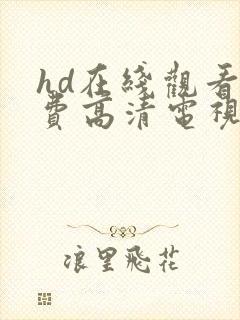 hd在綫觀看
費高清電視
浪里飛花